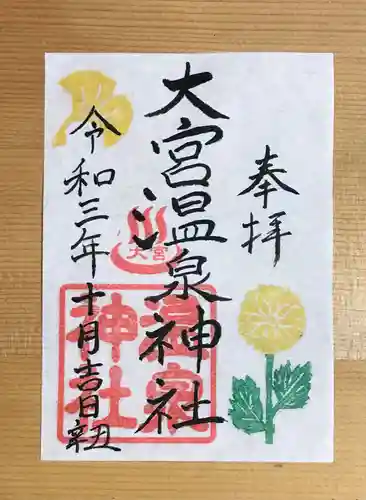 奉拝
大宮温泉神社
令和三年十月吉日
辛丑
大宮
温泉
神社